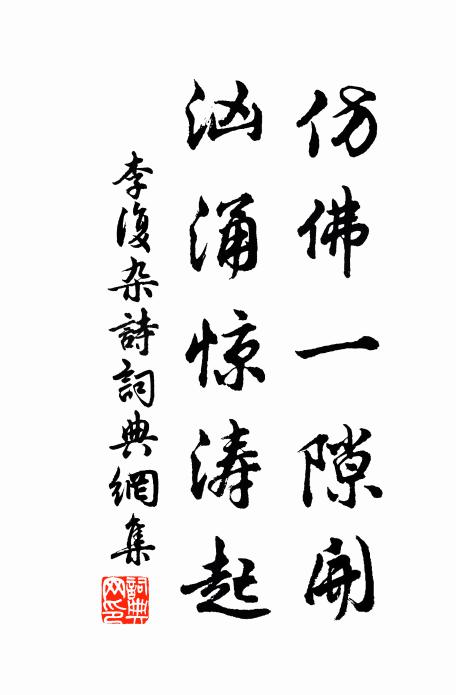 仿佛一隙開
汹涌惊涛起
李復杂詩詞典網集
詞典网印